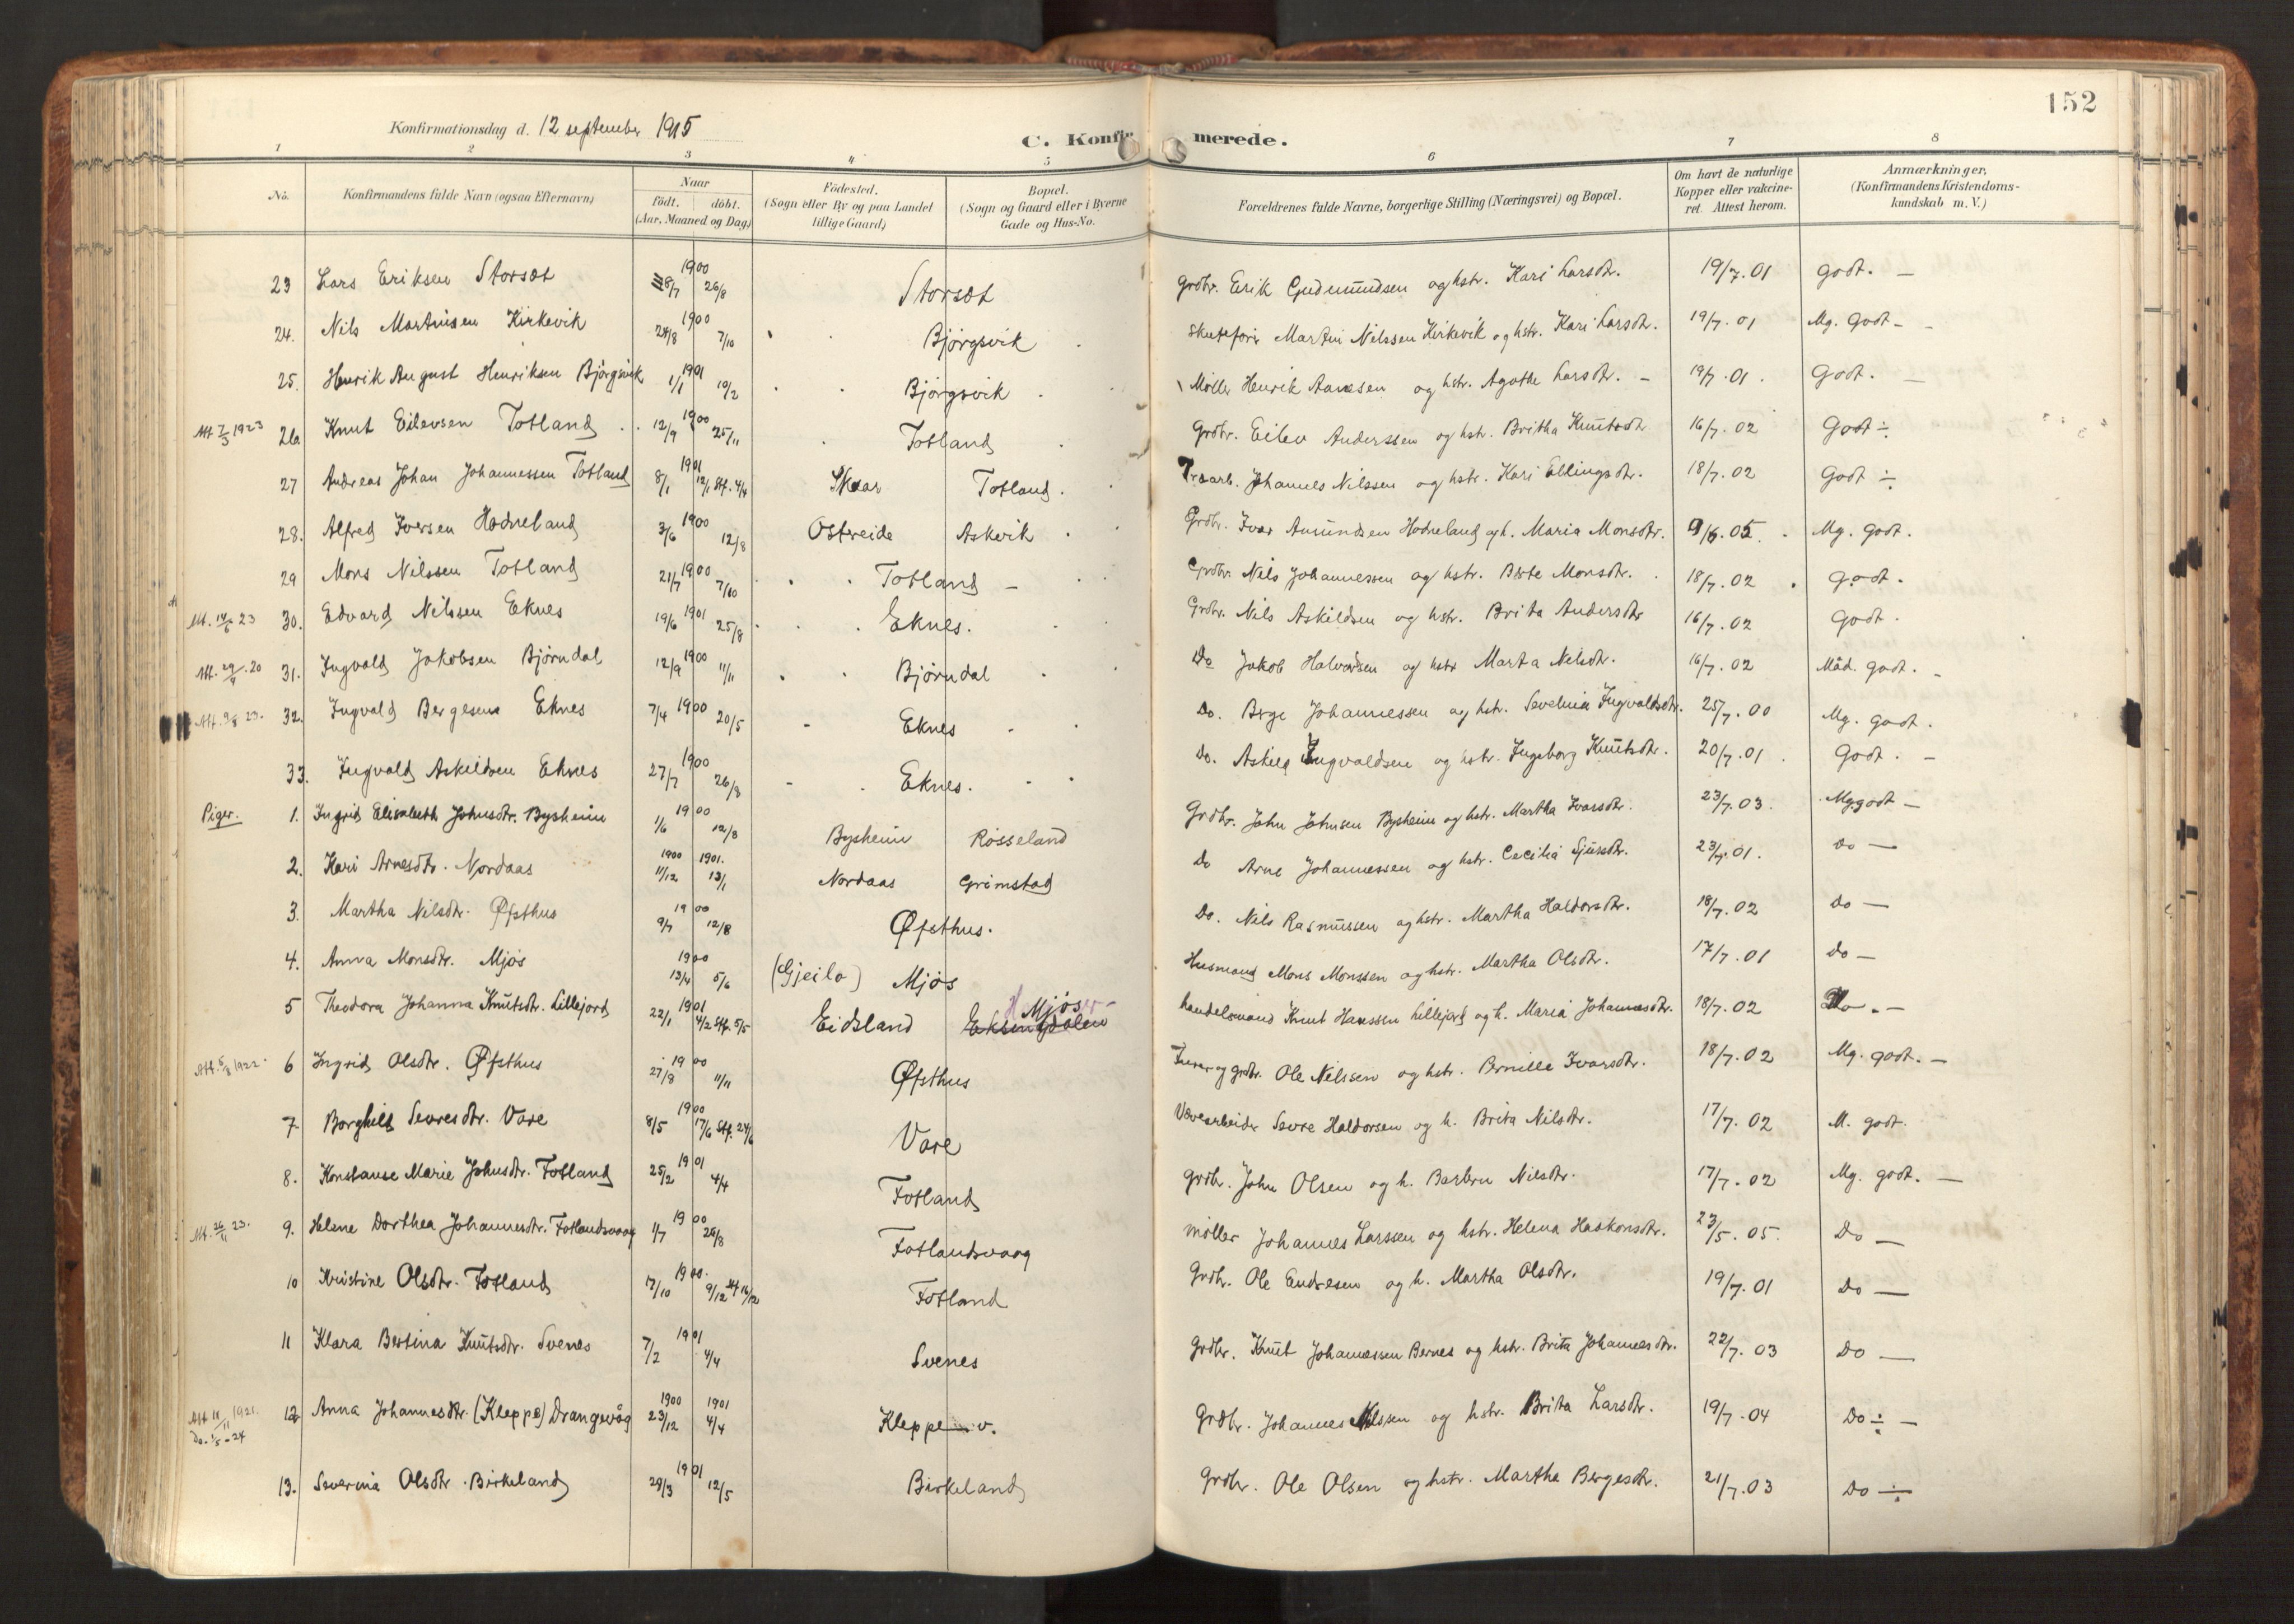 152
Konfirmationsdag d. 12 september 1915
C. Konfirmerede.
1 2 3 4 5 6 7 8
No. Konfirmandens fulde Navn (ogsaa Efternavn) Naar født. døbt. (Aar, Maaned og Dag) Fødested. (Sogn eller By og paa Landet tillige Gaard) Bopæl. (Sogn og Gaard eller i Byerne Gade og Hus-No. Forældrenes fulde Navne, borgerlige Stilling (Næringsvei) og Bopæl. Om havt de naturlige Kopper eller vakcineret. Attest herom. Anmærkninger, (Konfirmandens Kristendomskundskab m. V.)
23 Lars Eriksen Storset 1900 8/7 26/8 Storset Grdbr. Erik Gudmundsen og hstr. Kari Larsdtr. 19/7.01 godt. —
24. Nils Martinsen Kirkevik 1900 24/8 7/10 Bjørgsvik Martin Nilssen Kirkevik og hstr. Kari Larsdtr. 19/7.01 Mg. Godt -
25. Henrik August Henriksen Bjørgsvik 1901 1/1 10/2 Bjørgsvik Møller Henrik Aanesen og hstr. Agathe Larsdtr. - 19/7.01. Godt.
Att 7/3 1923 26 Knut Eilevsen Totland 1900 12/9 25/11 Totland Grdbr. Eilev Anderssen og hstr. Britha Knutsdtr 16/7.02 Godt ÷
27 Andreas Johan Johannessen Totland 1901 8/1 12/1 Stf. 4/4 Skaar Totland. Johannes Nilssen og hstr. Kari Ellingsdtr. 18/7.02 Godt ÷
28. Alfred Iversen Hodneland 1900 3/6 12/8 Ostreide Askvik Grdbr. Ivar Amundsen Hodneland og h. Maria Monsdtr. 9/6.05. Mg. godt.
29 Mons Nilssen Totland 1900 21/7 7/10 Totland - Grdbr. Nils Johannessen og hstr. Berte Monsdtr. 18/7.02 godt.
Att. 14/6 23 30. Edvard Nilssen Eknes 1901 19/6 25/8 Eknes. Grdbr. Nils Askildsen og hstr. Brita Andersdtr 16/7.02 Godt.
Att. 29/4.20 31. Ingvald Jakobsen Bjørndal 1900 12/9 11/11 Bjørndal Do Jakob Halvorsen og hstr Marta Nilsdtr. 16/7.02 Måd. godt.
32. Ingvald Bergesen Eknes 1900 7/4 20/5 Eknes Do. Berge Johannessen og hstr. Sevelina Ingvaldsdtr. 25/7.00 Mg. godt.
33. Ingvald Askildsen Eknes 1900 27/7 26/8 Eknes. Do. Askild Ingvaldsen og hstr. Ingeborg Knutsdtr. 20/7.01 Godt. -
Piger. 1. Ingrid Elisabeth Johnsdtr. Bysheim 1900 1/6 12/8 Bysheim Rosseland Grdbr. John Johnsen Bysheim og hstr. Martha Ivarsdtr. 23/7.03. Mg.godt -
2. Kari Arnesdtr. Nordaas 1900 1901. 11/12 13/1 Nordaas Grimstad Do Arne Johannessen og hstr. Cecilia Sjursdtr. 23/7.01. Do —
3. Martha Nilsdtr. Øfsthus 1900 9/7 12/8 Øfsthus. Do. Nils Rasmussen og hstr. Martha Haldorsdtr. 18/7.02 Do —
4. Anna Monsdtr. Mjøs 1900 13/4 5/6 (Gjeilo) Mjøs Husmand Mons Monssen og hstr. Martha Olsdtr. 17/7.01 Do —
5 Theodora Johanna Knutsdtr. Lillejord 1901 22/1 4/2 Stf. 5/5 Eidsland Eksingdalen Mjøs Handelsmand Knut Hanssen Lillejord og h. Maria Johannesdtr. 18/7.02 Do. -
Att. 5/8 1922. 6 Ingrid Olsdtr. Øfsthus 1900 27/8 11/11 Øfsthus og grdbr. Ole Nilssen og hstr. Pernille Ivarsdtr. 18/7.02 Mg. godt. -
7 Borghild Sevresdtr. Vare 1900 8/5 17/6 Stf. 24/6 Vare Sevre Haldorsen og h. Brita Nilsdtr. 17/7.02 M. godt.
8. Konstanse Marie Johnsdtr. Fotland 1901 25/2 4/4 Fotland Grdbr. John Olsen og h. Barbru Nilsdtr. 17/7.02 Mg. godt. —
Att. 26/11 23. 9. Helene Dorthea Johannesdtr. Fotlandsvaag 1900 1/7 26/8 Fotlandsvaag Møller Johannes Larssen og hstr. Helena Haakonsdtr. 23/5.05. Do —
10 Kristine Olsdtr. Fotland 1900. 17/10 9/12 Stf 16/12 Fotland Grdbr. Ole Endresen og h. Martha Olsdtr. 19/7.01 Do —
11 Klara Bertina Knutsdtr. Svenes 1901 7/2 4/4 Svenes Grdbr. Knut Johannessen Bernes og hstr. Brita Johannesdtr. 22/7.03 Do —
Att 11/11 1921. Do. 1/5 - 24 12 Anna Johannesdtr. (Kleppe) Drangevåg 1900 1901 23/12 4/4 Kleppe v. Grdbr. Johannes Nilssen og hstr. Brita Larsdtr. 19/7.04 Do ÷ -
13. Severina Olsdtr. Birkeland 1901 29/3 12/5 Birkeland Grdbr. Ole Olsen og hstr. Martha Bergesdtr. 21/7.03 Do ÷